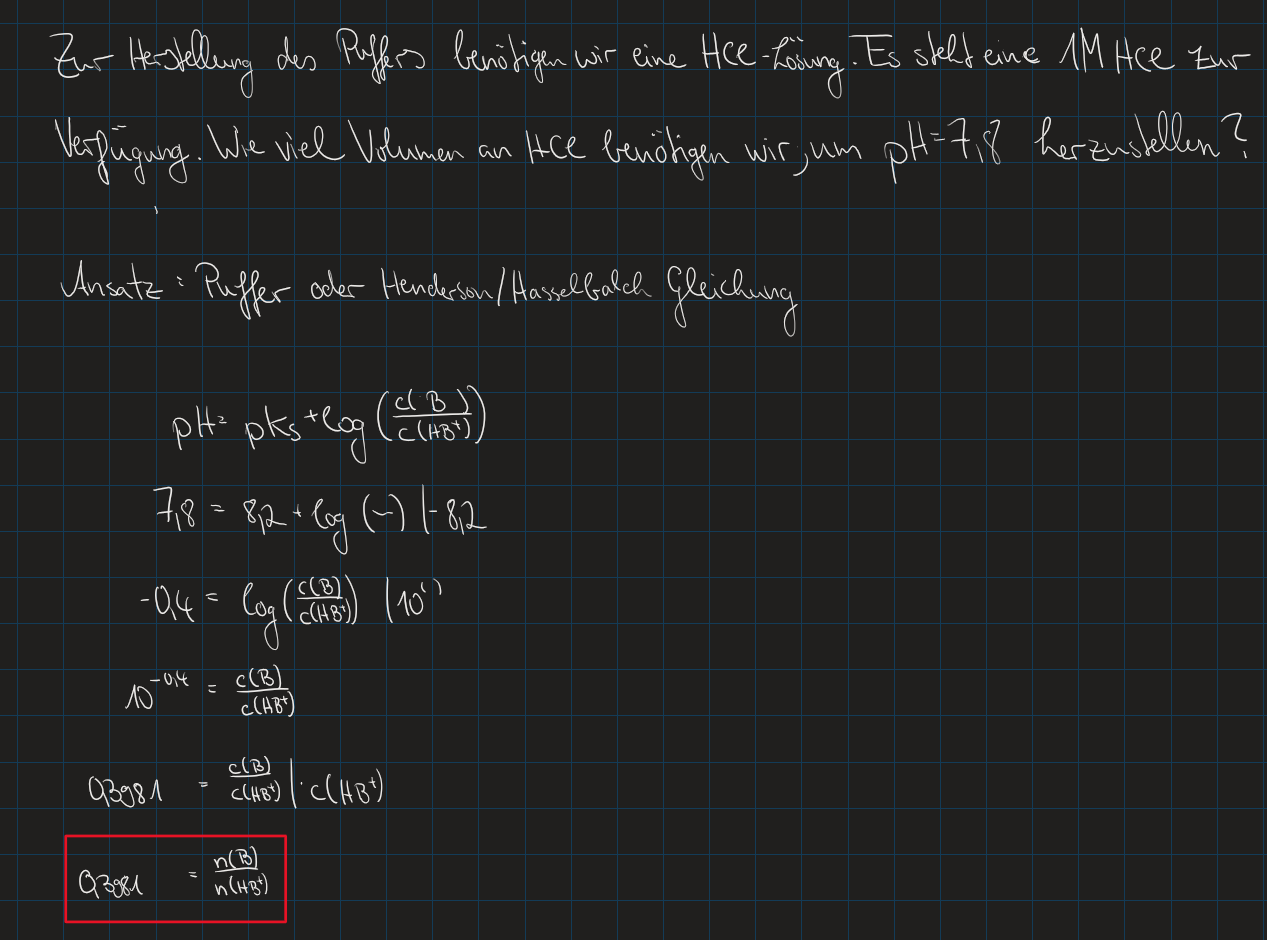 Zur Herstellung des Puffers benötigen wir eine HCl-Lösung. Es steht eine 1M HCl zur
Verfügung. Wie viel Volumen an HCl benötigen wir, um pH=7,8 herzustellen?
Ansatz: Puffer oder Henderson/Hasselbalch Gleichung
pH= pKs + log (c(B)/c(HB⁺))
7,8 = 8,2 + log (~) |-8,2
-0,4 = log (c(B)/c(HB⁺)) |10^()
10^-0,4 = c(B)/c(HB⁺)
0,3981 = c(B)/c(HB⁺) | · c(HB⁺)
0,3981 = n(B)/n(HB⁺)